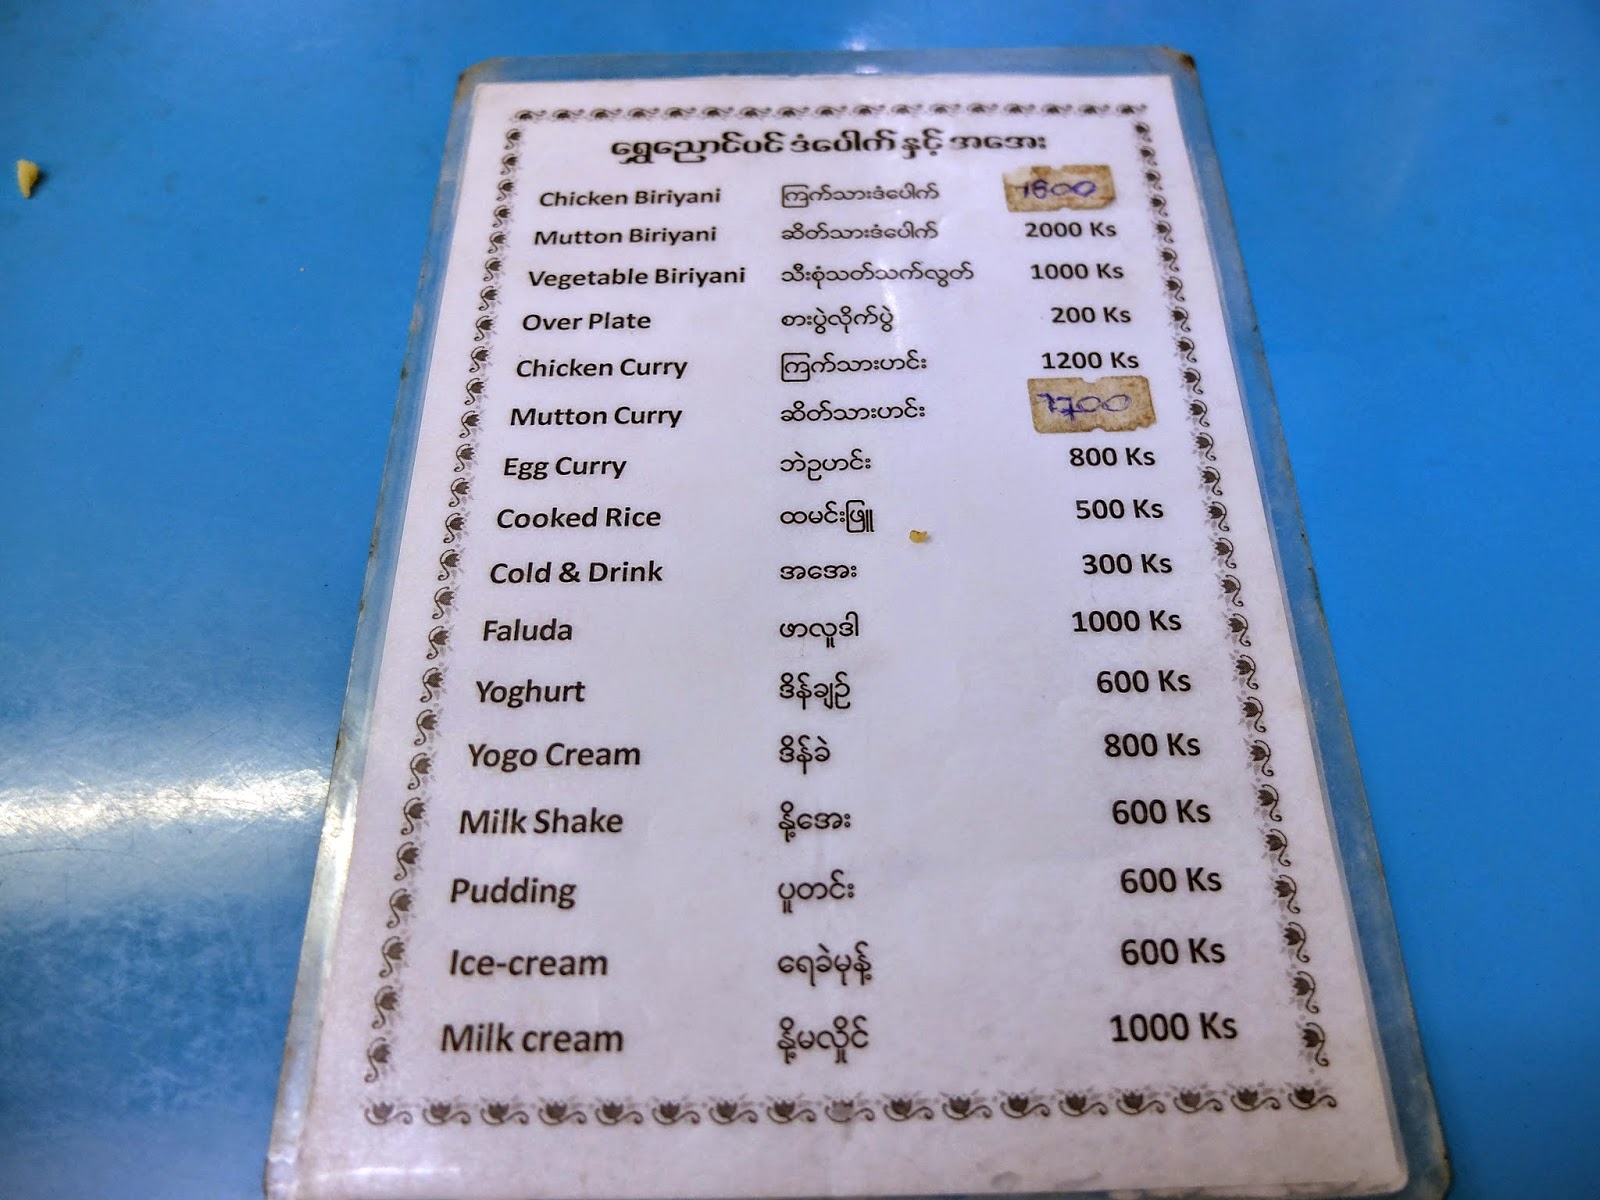 ရွှေညောင်ပင် ဒံပေါက် နှင့် အအေး
Chicken Biriyani ကြက်သားဒံပေါက် 1800
Mutton Biriyani ဆိတ်သားဒံပေါက် 2000 Ks
Vegetable Biriyani သီးစုံသတ်သက်လွတ် 1000 Ks
Over Plate စားပွဲလိုက်ပွဲ 200 Ks
Chicken Curry ကြက်သားဟင်း 1200 Ks
Mutton Curry ဆိတ်သားဟင်း 1700
Egg Curry ဘဲဥဟင်း 800 Ks
Cooked Rice ထမင်းဖြူ 500 Ks
Cold & Drink အအေး 300 Ks
Faluda ဖာလူဒါ 1000 Ks
Yoghurt ဒိန်ချဉ် 600 Ks
Yogo Cream ဒိန်ခဲ 800 Ks
Milk Shake နို့အေး 600 Ks
Pudding ပူတင်း 600 Ks
Ice-cream ရေခဲမုန့် 600 Ks
Milk cream နို့မလှိုင် 1000 Ks